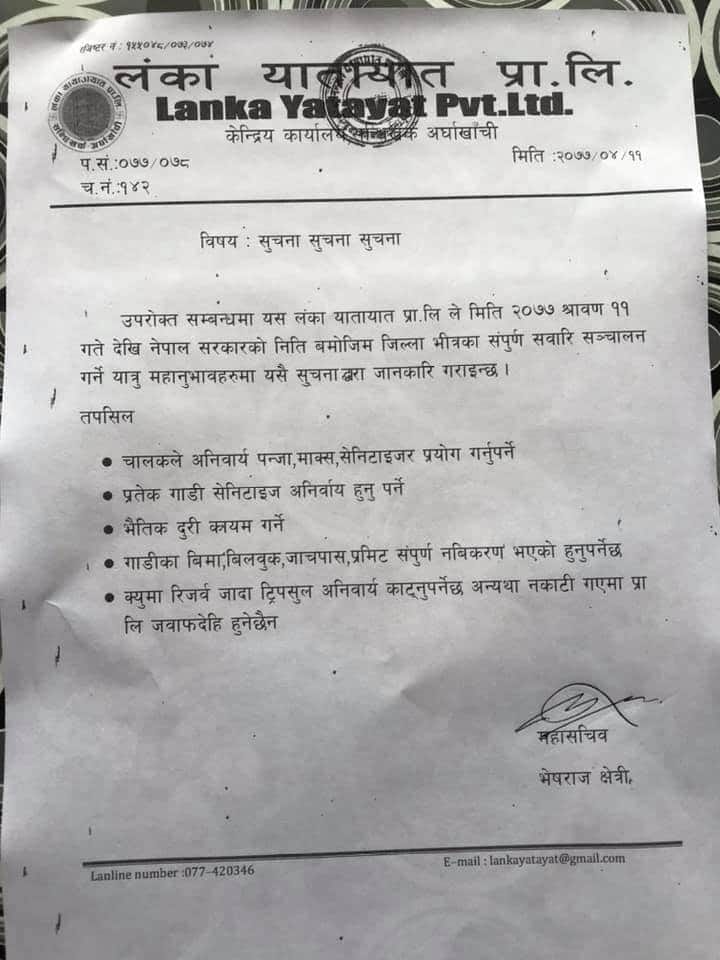 रजिष्टर नं : १५५०४८/०७३/०७४
लंका यातायात प्रा.लि.
Lanka Yatayat Pvt.Ltd.
केन्द्रिय कार्यालय अर्घाखाँची
प.सं.:०७७/०७८
मिति :२०७७/०४/११
च.नं.:१४२
विषय : सुचना सुचना सुचना
उपरोक्त सम्बन्धमा यस लंका यातायात प्रा.लि ले मिति २०७७ श्रावण ११
गते देखि नेपाल सरकारको निति बमोजिम जिल्ला भीत्रका संपुर्ण सवारि सञ्चालन
गर्ने यात्रु महानुभावहरुमा यसै सुचनाद्वारा जानकारि गराइन्छ ।
तपसिल
● चालकले अनिवार्य पन्जा,माक्स,सेनिटाइजर प्रयोग गर्नुपर्ने
● प्रतेक गाडी सेनिटाइज अनिर्वाय हुनु पर्ने
● भैतिक दुरी कायम गर्ने
● गाडीका बिमा,बिलवुक,जाचपास,प्रमिट संपुर्ण नबिकरण भएको हुनुपर्नेछ
● क्युमा रिजर्व जादा ट्रिपसुल अनिवार्य काट्नुपर्नेछ अन्यथा नकाटी गएमा प्रा
लि जवाफदेहि हुनेछैन
महासचिव
भेषराज क्षेत्री
Lanline number :077-420346
E-mail : lankayatayat@gmail.com